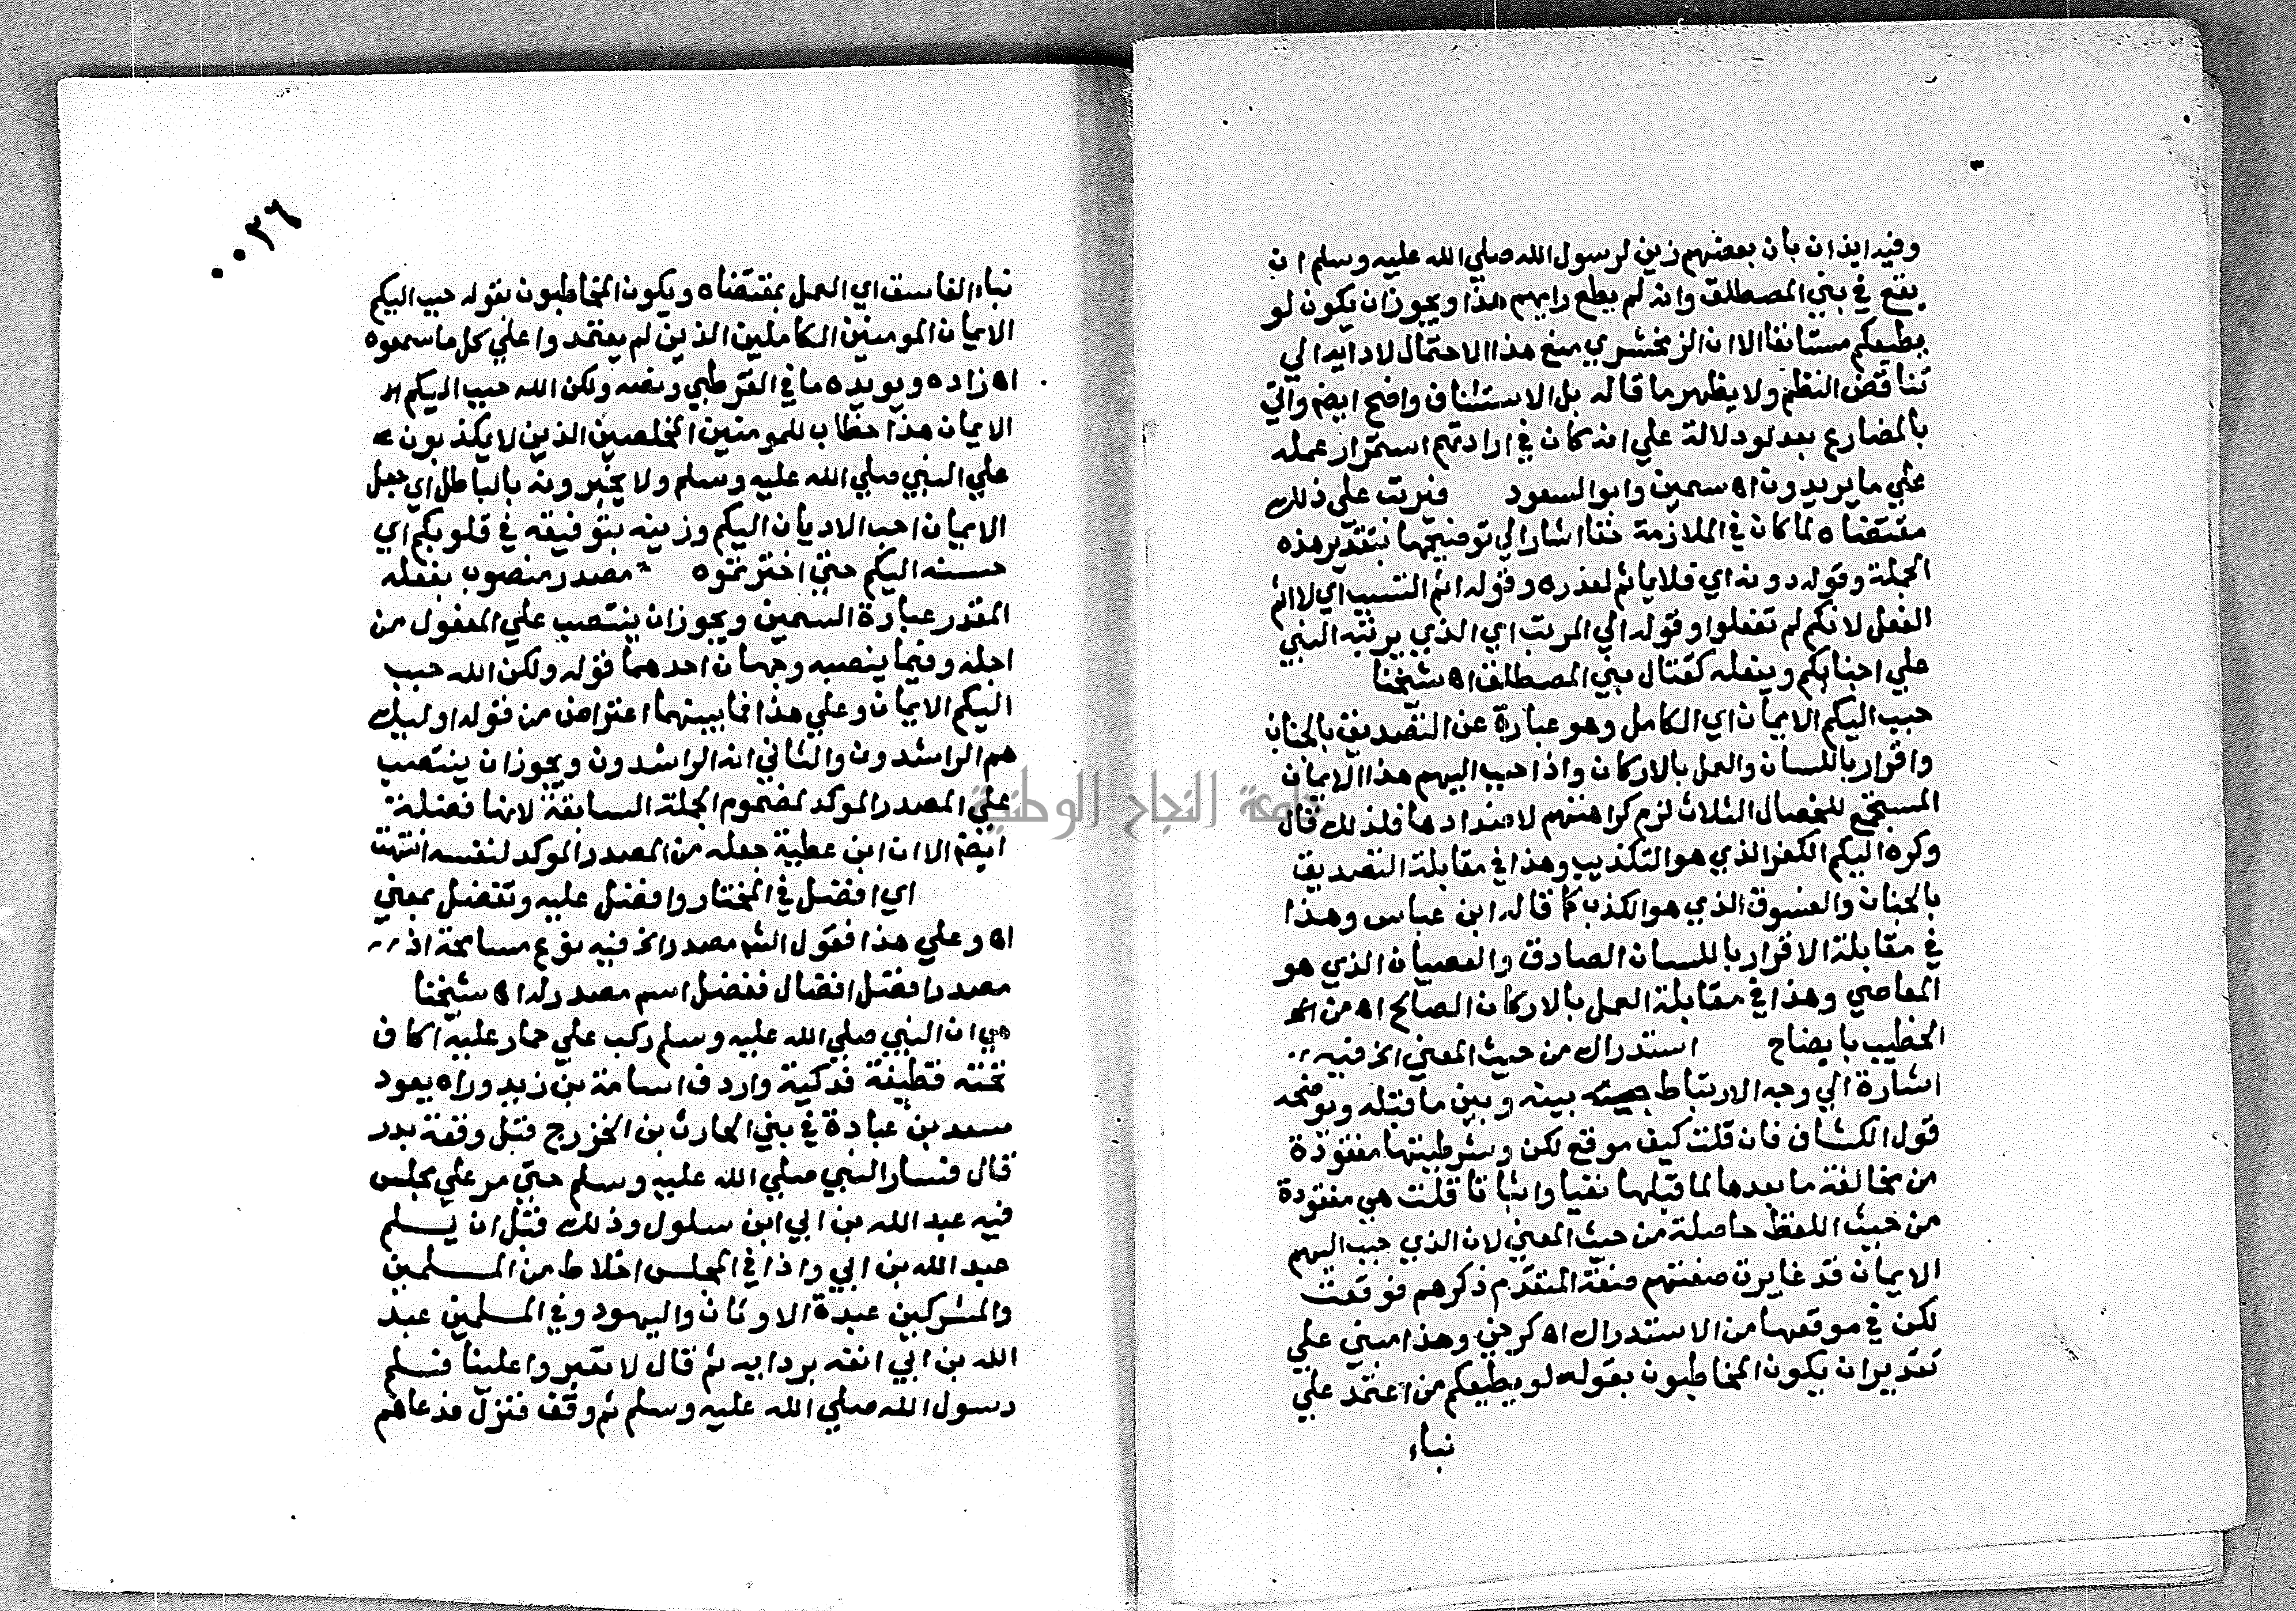 ٣
وفيه ايذان بان بعضهم زين لرسول الله صلي الله عليه وسلم ان
يقع في بني المصطلق وانه لم يطع رايهم هذا ويجوز ان يكون لو
يطيعكم مستانفا الا ان الزمخشري منع هذا الاحتمال لادايه الي
تناقض النظم ولا يظهر ما قاله بل الاستئناف واضح ايضم واتي
بالمضارع بعد لو دلالة علي انه كان في ارادتهم استمرار عمله
علي ما يريدون اه سمين وابو السعود فيرتب علي ذلك
مقتضاه لما كان في الملازمة خفا اشار الي توضيحها بتقدير هذه
الجملة وقوله دونه اي فلا ياثم لعذره وقوله اثم التسبب اي لا اثم
الفعل لانكم لم تفعلوا وقوله الي المرتب اي الذي يرتبه النبي
علي اخباركم ويفعله كقتال بني المصطلق اه شيخنا
حبب اليكم الايمان اي الكامل وهو عبارة عن التصديق بالجنان
واقرار باللسان والعمل بالاركان واذا حبب اليهم هذا الايمان
المستجمع للخصال الثلاث لزم كراهتهم لاضدادها فلذلك قال
وكره اليكم الكفر الذي هو التكذيب وهذا في مقابلة التصديق
بالجنان والفسوق الذي هو الكذب كما قاله ابن عباس وهذا
في مقابلة الاقرار باللسان الصادق والعصيان الذي هو
المعاصي وهذا في مقابلة العمل بالاركان الصالح اه من
الخطيب بايضاح استدراك من حيث المعني الخ فيه
اشارة الي وجه الارتباط بينه وبين ما قبله ويوضحه
قول الكشاف فان قلت كيف موقع لكن وشرطيتها مفقودة
من مخالفة ما بعدها لما قبلها نفيا واثباتا قلت هي مفقودة
من حيث اللفظ حاصلة من حيث المعني لان الذي حبب اليهم
الايمان قد غايرت صفتهم صفة المتقدم ذكرهم فوقعت
لكن في موقعها من الاستدراك اه كرخي وهذا مبني علي
تقدير ان يكون المخاطبون بقوله لو يطيعكم من اعتمد علي
نباء
٠٠٣٦
نباء الفاسق اي العمل بمقتضاه ويكون المخاطبون بقوله حبب اليكم
الايمان المومنين الكاملين الذين لم يعتمدوا علي كل ما سمعوه
اه زاده ويويده ما في القرطبي ونصه ولكن الله حبب اليكم
الايمان هذا خطاب للمومنين المخلصين الذين لا يكذبون
علي النبي صلي الله عليه وسلم ولا يخبرونه بالباطل اي جعل
الايمان احب الاديان اليكم وزينه بتوفيقه في قلوبكم اي
حسنه اليكم حتي اخترتموه مصدر منصوب بفعله
المقدر عبارة السمين ويجوز ان ينتصب علي المفعول من
اجله وفيما ينصبه وجهان احدهما قوله ولكن الله حبب
اليكم الايمان وعلي هذا فما بينهما اعتراض من قوله اوليك
هم الراشدون والثاني انه الراشدون ويجوز ان ينتصب
علي المصدر الموكد لمضموم الجملة السابقة لانها فضلة
ايضم الا ان ابن عطية جعله من المصدر الموكد لنفسه انتهت
اي افضل في المختار وافضل عليه وتفضل بمعني
اه وعلي هذا فقول الشم مصدر الخ فيه نوع مسامحة اذ
مصدر افضل افضال ففضل اسم مصدر له اه شيخنا
هي ان النبي صلي الله عليه وسلم ركب علي حمار عليه اكاف
تحته قطيفة فدكية واردف اسامة بن زيد وراه يعود
سعد بن عبادة في بني الحارث بن الخزرج قبل وقعة بدر
قال فسار النبي صلي الله عليه وسلم حتي مر علي مجلس
فيه عبد الله بن ابي ابن سلول وذلك قبل ان يسلم
عبد الله بن ابي واذا في المجلس اخلاط من المسلمين
والمشركين عبدة الاوثان واليهود وفي المسلمين عبد
الله بن ابي انفه بردايه ثم قال لا تغبروا علينا فسلم
رسول الله صلي الله عليه وسلم ثم وقف فنزل فدعاهم
جامعة النجاح الوطنية